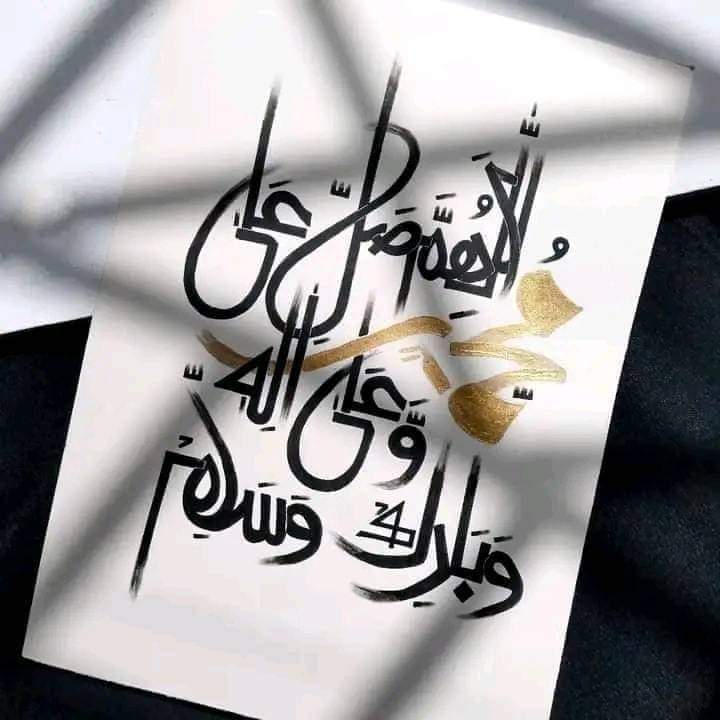 اَللّٰهُمَّ صَلِّ عَلَى
مُحَمَّدٍ
وَّعَلَى اٰلِهٖ
وَبَارِك وَسَلِّمْ